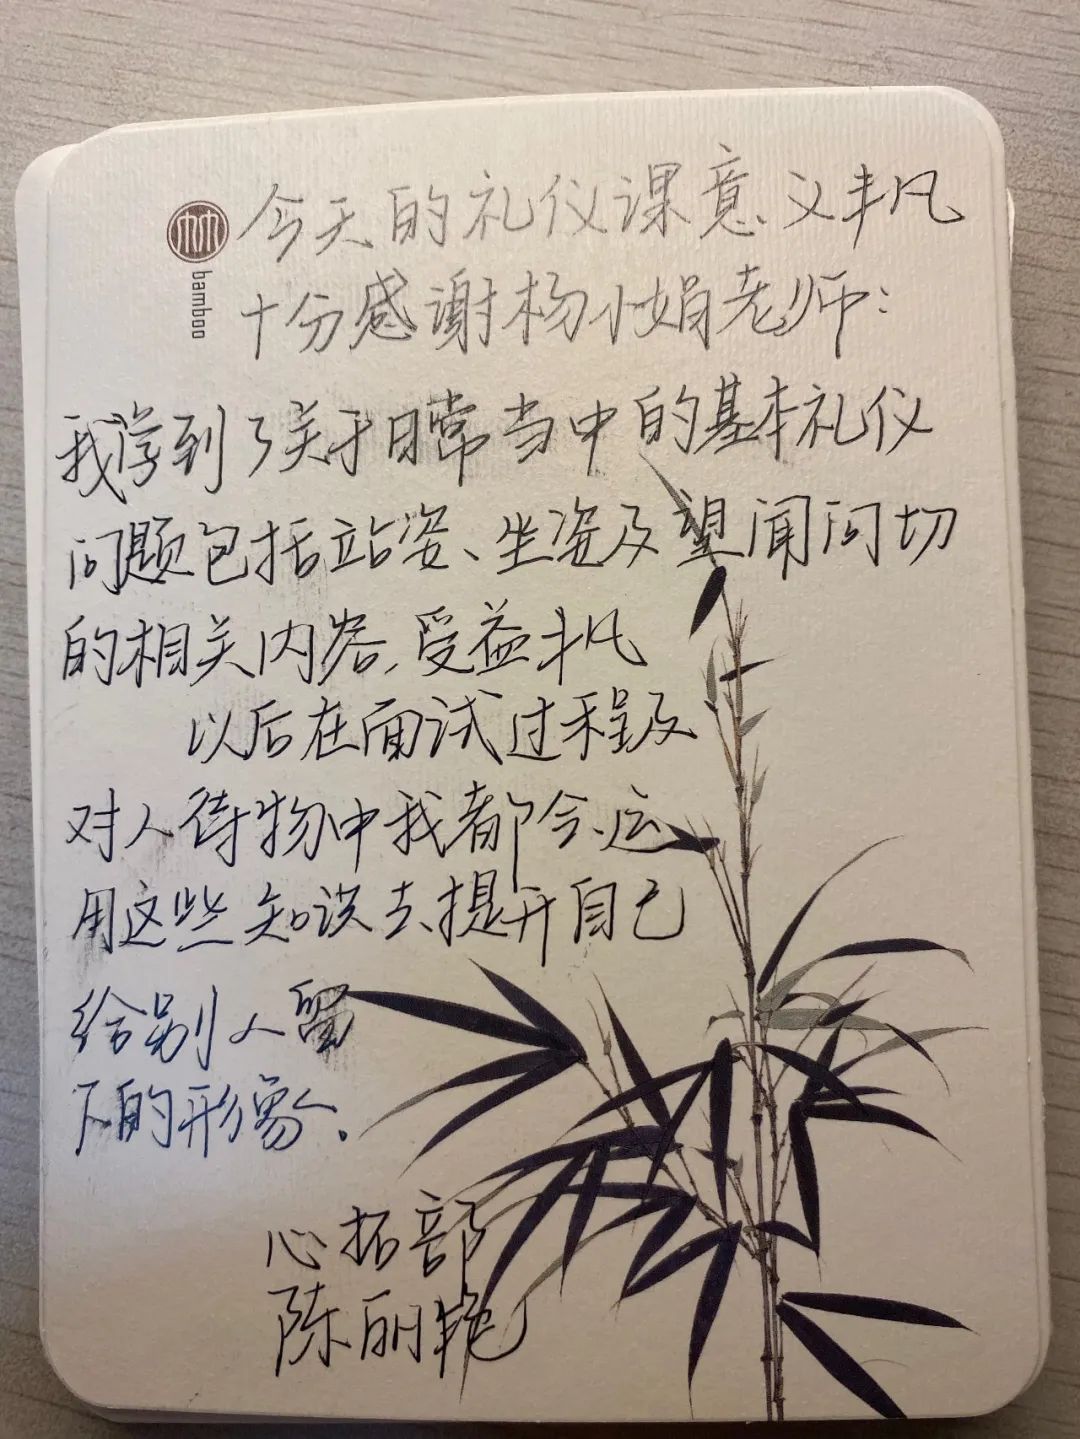 今天的礼仪课意义丰凡
bamboo
十分感谢杨小娟老师：
我学到了关于日常当中的基本礼仪
问题包括站姿、坐姿及望闻问切
的相关内容，受益丰凡
以后在面试过程及
对人待物中我都会运
用这些知识去提升自己
给别人留
下的形象、
心拓部
陈丽艳